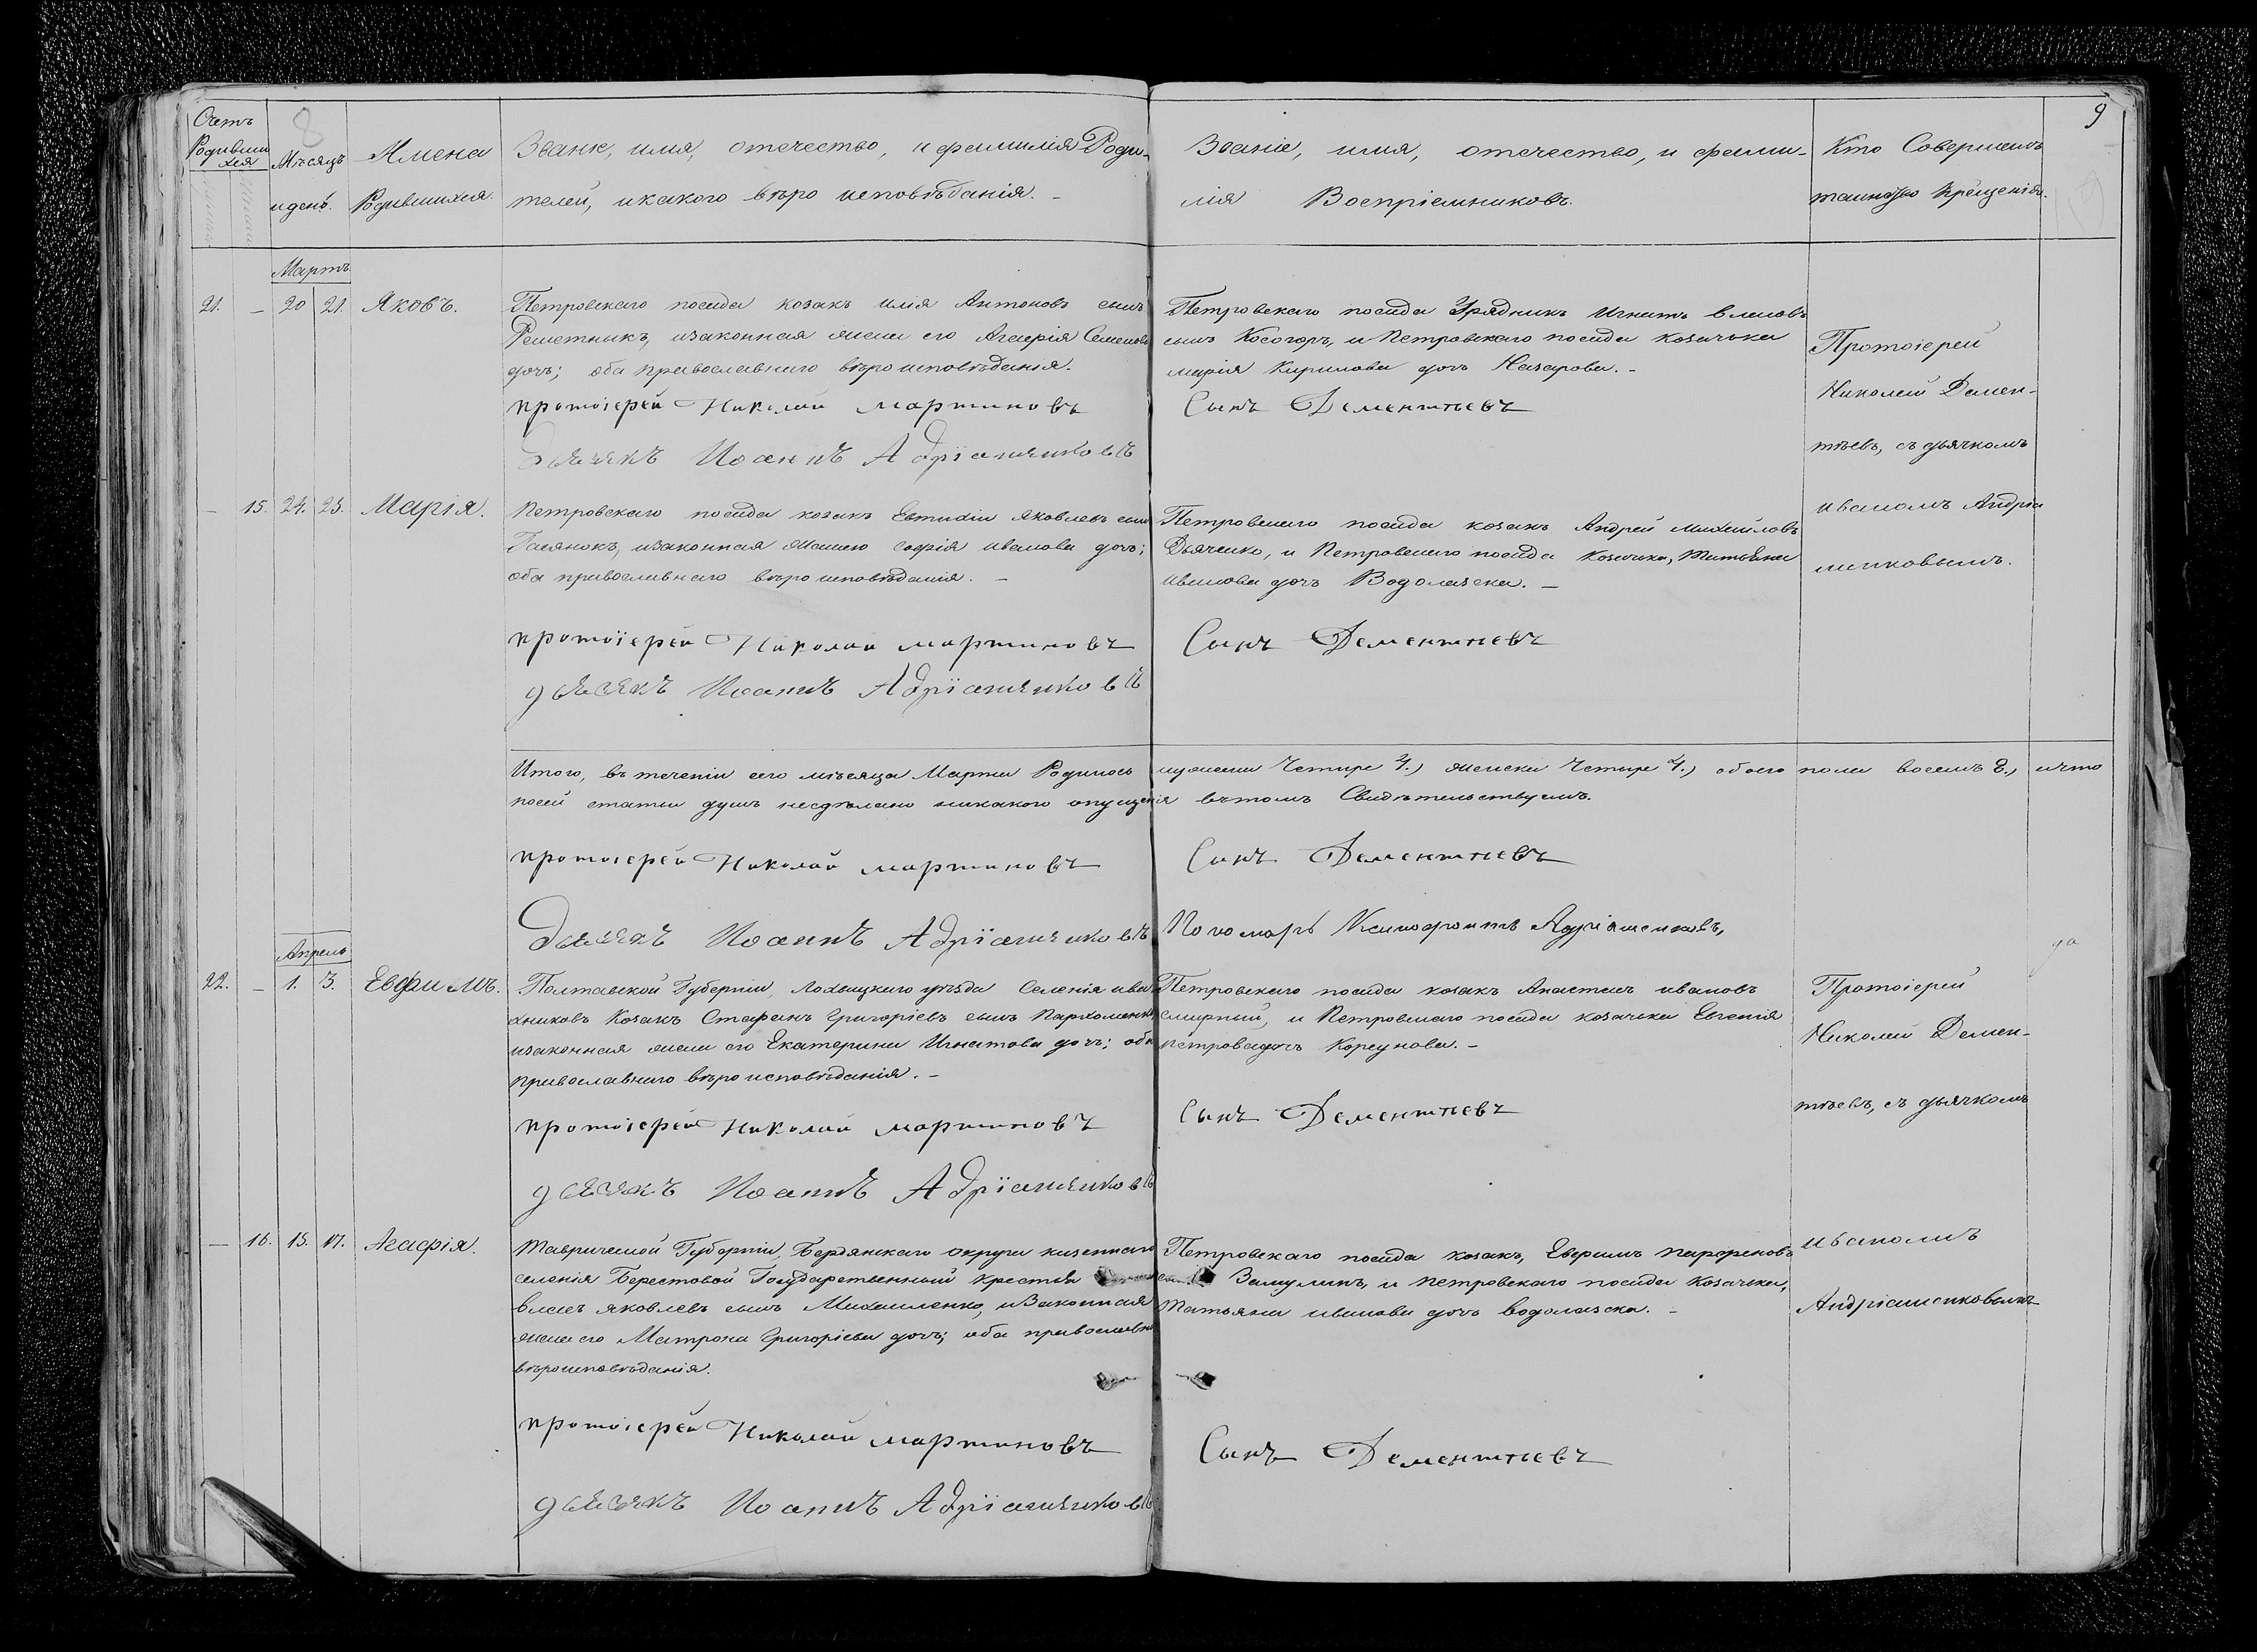 Счетъ
Родивши
хся
8
Мѣсяцъ
и день.
Имена
Родившихся.
Званіе, имя, отечество, и фамилія Роди-
телей, и какого вѣроисповѣданія. -
Званіе, имя, отечество, и фами-
лія Воспріемниковъ.
Кто Совершалъ
таинство крещенія.
9
Мартъ
21. - 20 21. Яковъ.
Петровскаго посада козакъ илія Антоновъ сынъ
Решетникъ, изаконная жена его Агафія Семенова
дочь; оба православнаго вѣроисповѣданія.
протоіерей Николай мартиновъ
дьячекъ Иоаннъ Адріаненковъ
Петровскаго посада Урядникъ Игнатъ власовъ
сынъ Косогоръ, и Петровскаго посада козачька
марія Кирилова дочь Назарова. -
Сынъ Дементтевъ
Протоіерей
Николай Демен-
тьевъ, съ дьячкомъ
иваномъ Андріа
ненковымъ.
- 15. 24. 25. Марія.
Петровскаго посада козакъ Евтихій Яковлевъ сынъ
изаконная Софія иванова дочь;
оба православнаго вѣроисповѣданія. -
протоіерей Николай мартиновъ
дьячекъ Иоаннъ Адріаненковъ
Петровскаго посада козакъ Андрей михайловъ
Дьяченко, и Петровскаго посада Козачька, Татьяна
иванова дочь Водолазска. -
Сынъ Дементтевъ
Итого, въ теченіи сего мѣсяца Марта Родилось мужеска Четыре 4.) женска Четыре 4.) обоего пола восемь 8.) ичто
посей статьи душъ несдѣлано никакого опущенія вътомъ Свидѣтельствуемъ.
протоіерей Николай мартиновъ
Сынъ Дементтевъ
Дьячекъ Иоаннъ Адріаненковъ
Пономарь Ксенофонтъ Адріяненковъ,
Апрель
22. - 1. 3. Евфимъ.
Полтавской Губерніи, Лохвицкаго уѣзда Селенія
Козакъ Стефанъ Григоріевъ сынъ Пархоменко,
изаконная жена его Екатерина Игнатова дочь; оба
православнаго вѣроисповѣданія. -
протоіерей Николай мартиновъ
дьячекъ Иоаннъ Адріаненковъ
Петровскаго посада козакъ Анастасъ ивановъ
смирный, и Петровскаго посада козачька Евгенія
петровадочь Корсунова. -
Сынъ Дементтевъ
Протоіерей
Николай Демен-
тьевъ, съ дьячкомъ
иваномъ
Андріаненковымъ
- 16. 15. 17. Агафія.
Таврической Губерніи, Бердянскаго округа казеннаго
селенія Берестовой Государственный крестья
власъ яковлевъ сынъ Михаиленко, изаконная
жена его Матрона Григоріева дочь; оба православна
вѣроисповѣданія.
протоіерей Николай мартиновъ
дьячекъ Иоаннъ Адріаненковъ
Петровскаго посада козакъ, Ефремъ парфеновъ
и петровскаго посада козачька,
Татьяна иванова дочь водолазска. -
Сынъ Дементтевъ